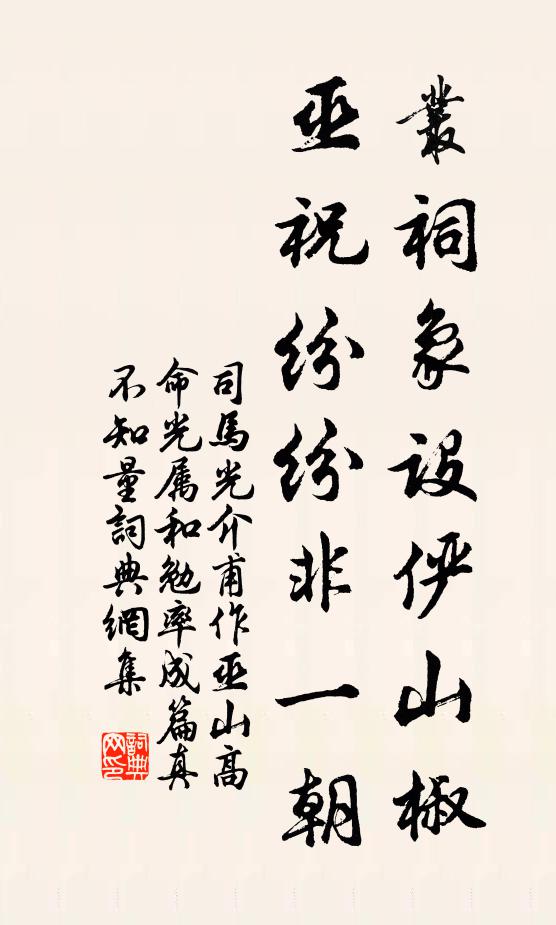 叢祠象設俨山椒
巫祝紛紛非一朝
司馬光介甫作巫山高
命光属和勉率成篇真
不知量詞典網集
詞典
网印